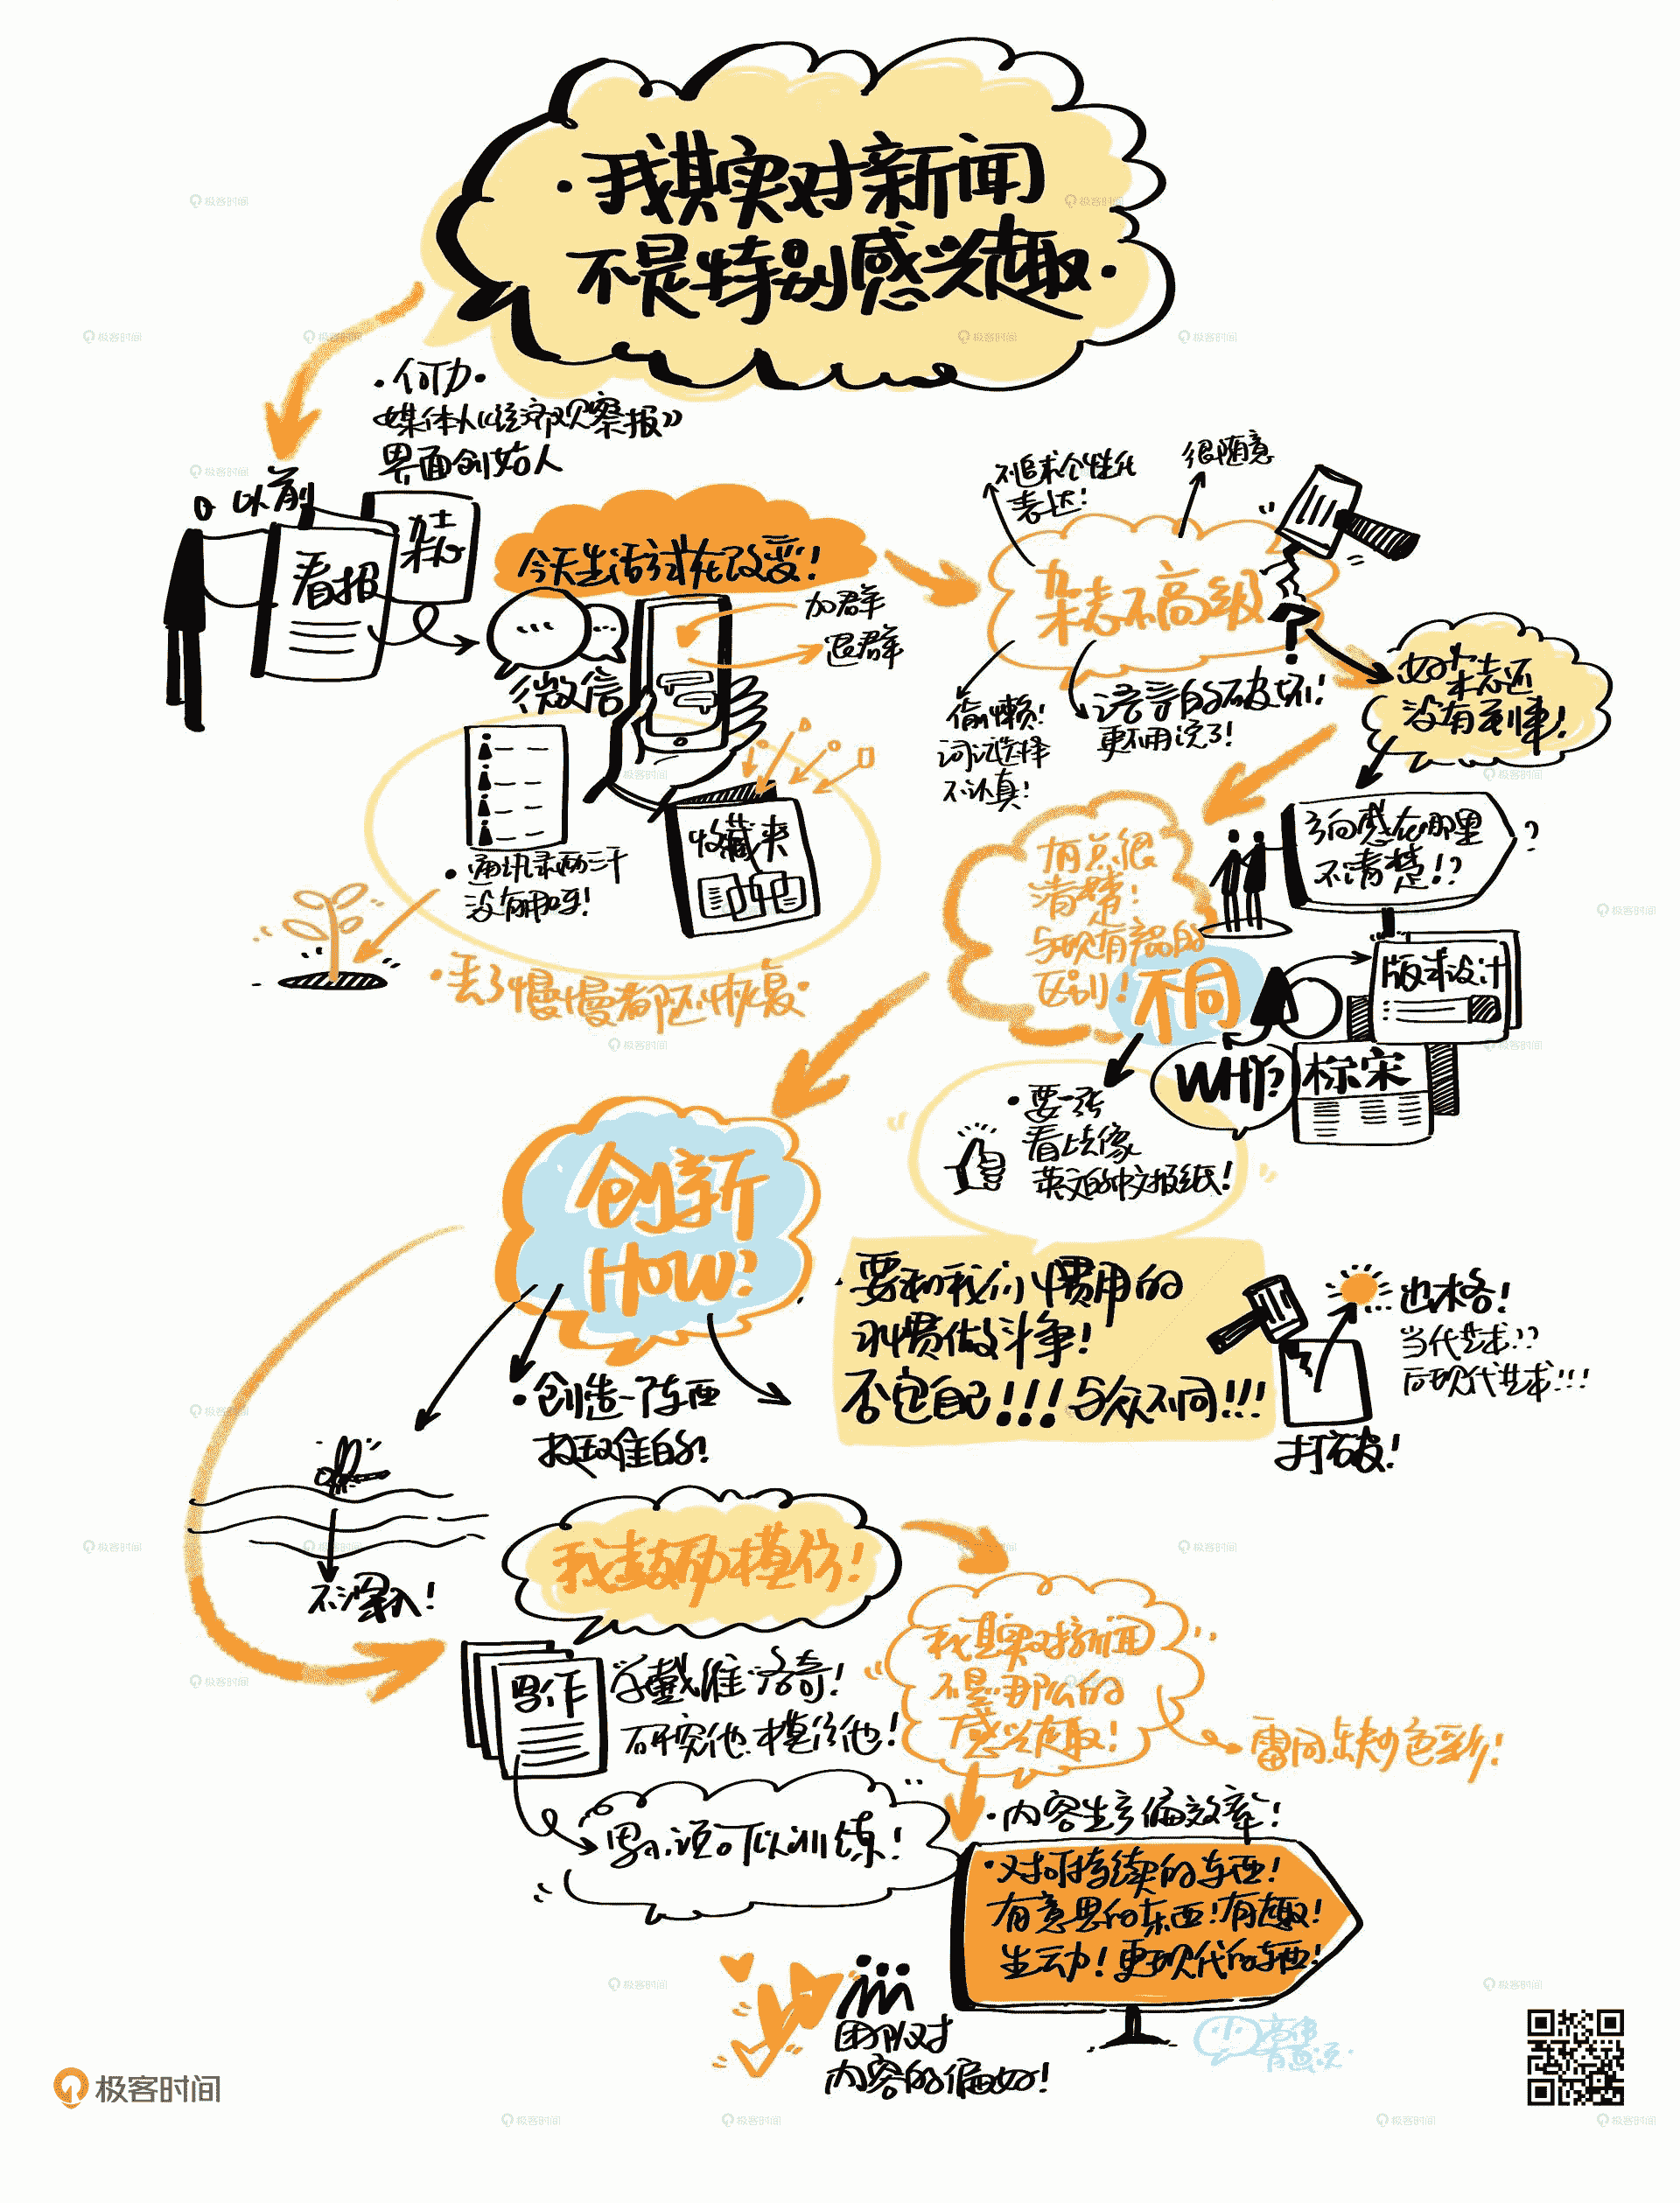 ·我其实对新闻
不是特别感兴趣·
·何力·
媒体人《经济观察报》
界面创始人
以前
看报
杂志
今天生活方式在改变!
加群
退群
微信
收藏夹
·通讯录两三千
没有用呀!
·丢了慢慢都还恢复·
不追求个性化
表达!
很随意
杂志不高级
?
偷懒!
词汇选择
不认真!
语言的破坏!
更不用说了!
好杂志还
没有到来!
方向感在哪里
不清楚!?
?
有点很
清楚!
是
与现有产品的
区别!
不同
版式设计
WHY?
标宋
·要一张
看上去像
英文的中文报纸!
创新
HOW?
·创造一个东西
挺难的!
不深入!
·要和我们惯用的
习惯做斗争!
否定自己!!!与众不同!!!
打破!
出格!
当代艺术??
后现代艺术!!!
我鼓励模仿!
写作
学戴维·洛奇!
研究他.模仿他!
写小说可以训练!
我其实对新闻
不是那么的
感兴趣!
雷同.缺少色彩!
·内容生产偏效率!
·对可持续的东西!
有意思的东西!有趣!
生动!更现代的东西!
团队对
内容的偏好!
极客时间